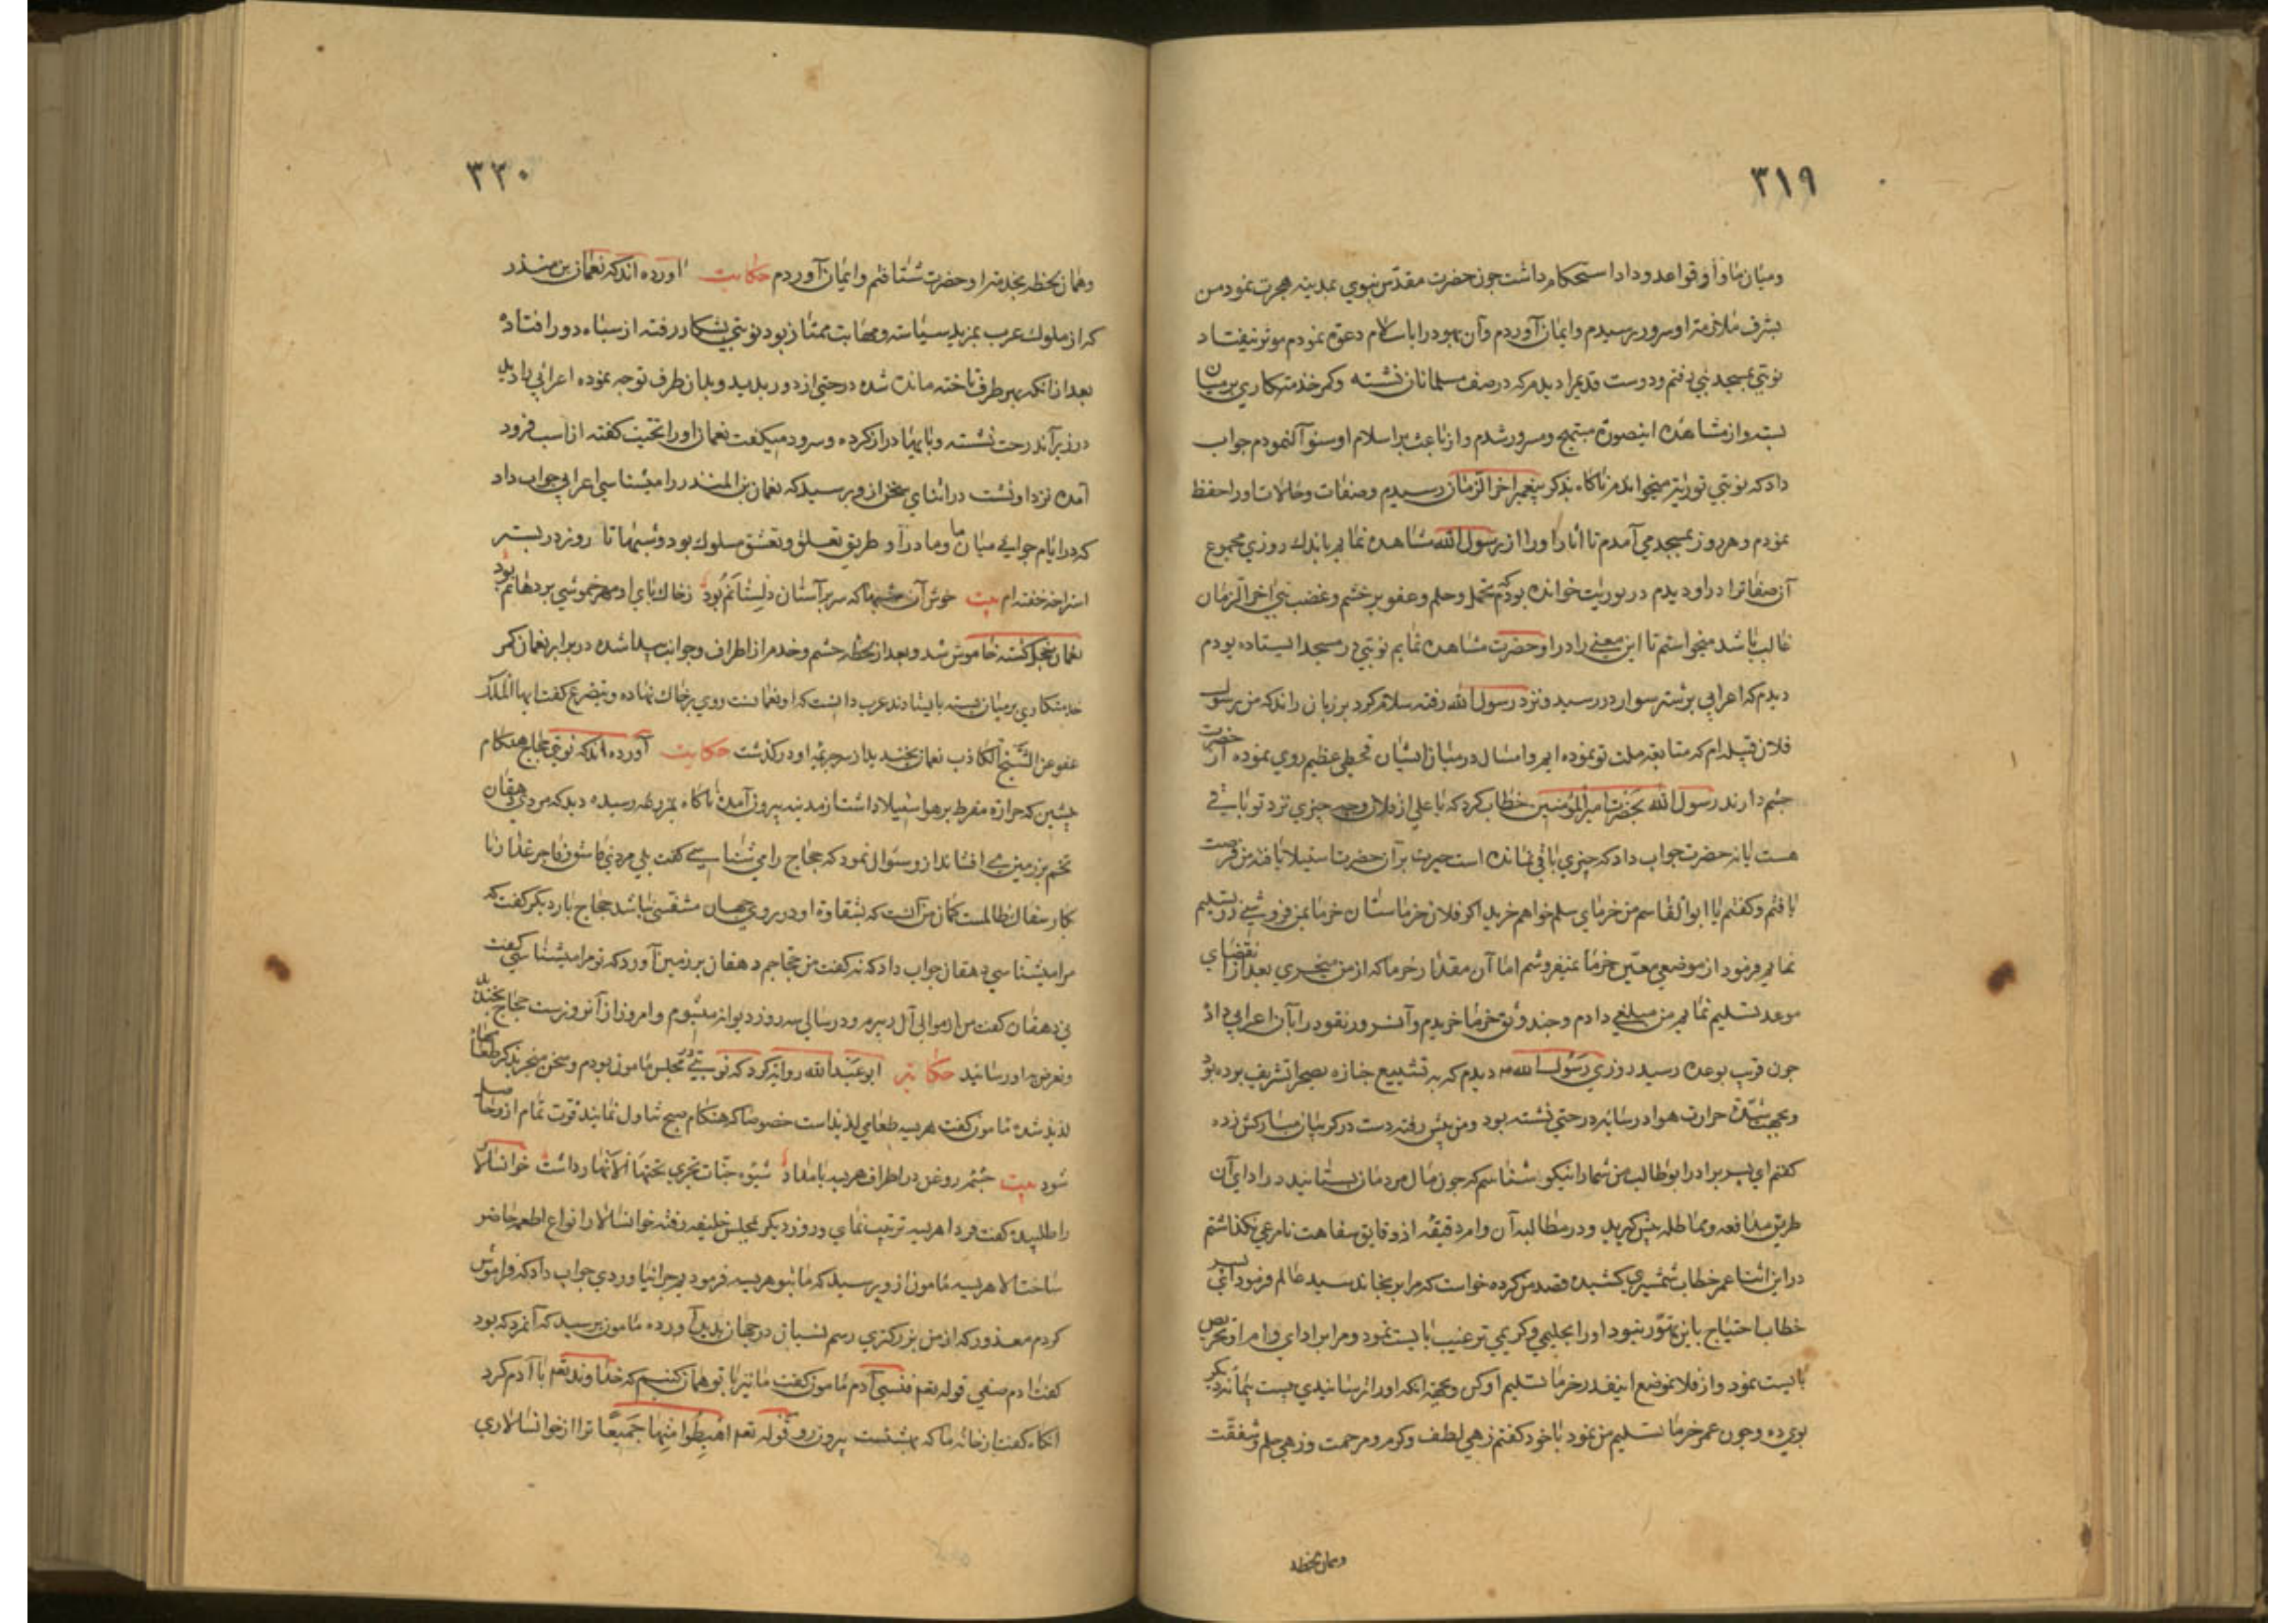 ٣١٩
ومیان ما و او قواعد وداد استحکام داشت جون حضرت مقدس نبوي بمدینه هجرت نمود من
بشرف ملازمت او سرور رسیدم وایمان آوردم وآن یهود را باسلام دعوة نمودم موثر نیفتاد
نوبتي بمسجد نبي رفتم ودوست قدیم را دیدم که در صف مسلمانان نشسته وکمر خدمتکاري بر میان
بسته واز مشاهده اینصورة مبتهج ومسرور شدم واز باعث بر اسلام او سنوآل نمودم جواب
داد که نوبتي توریة میخواندم ناکاه بذکر پیغمبر اخر الزمان رسیدم وصفات وحالات اورا حفظ
نمودم وهر روز بمسجد مي آمدم تا انار اورا از رسول الله مشاهده نمایم باندك روزي مجموع
آن صفاترا در او دیدم در توریت خوانده بودم که تحمل وحلم وعفو بر خشم وغضب نبي اخر الزمان
غالب باشد میخواستم تا این معني را در او حضرت مشاهده نمایم نوبتي در مسجد ایستاده بودم
دیدم که اعرابي بر شتر سوار در رسید ونزد رسول الله رفته سلام کرد بر زبان راند که من رسول
فلان قبیله ام که متابعه ملت تو نموده ایم وامسال در میان ایشان قحطي عظیم روي نموده از حضرت
جشم دارند رسول الله بحضرت امیر المؤمنین خطاب کرد که یا علي از فلان وجه چیزي نزد تو باقي
هست یا نه حضرت جواب داد که چیزي باقي نمانده است حیرت بر آن حضرت استیلا یافته من فرصت
یافتم وکفتم یا ابو القاسم من خرماي سلم خواهم خرید اکر فلان خرماستان خرما بمن فروشي در تسلیم
نمایم فرمود از موضعي معین خرما نمیفروشم اما آن مقدار خرما که از من میخري بعد از انقضاي
موعد تسلیم نمایم من مبلغي دادم وجند وثق خرما خریدم وآنسرور نقود را بآن اعرابي داد
جون قریب بوعده رسید روزي رسول الله دیدم که به تشییع جنازه بصحرا تشریف برده بود
وبجهت شدة حرارت هوا در سایه درختي نشسته بود ومن پیش رفته دست در کریبان مبارکش زده
کفتم اي پسر برادر ابو طالب من شما را نیکو شناسم که جون مال مردمان بستانید در اداي آن
طریق مدافعه ومماطله پیش کیرید ودر مطالبه آن وام دقیقه از دقایق سفاهت نامرعي نکذاشتم
در این اثنا عمر خطاب شمشیري کشیده قصد من کرده خواست که مرا برنجاند سید عالم فرمود اي پسر
خطاب احتیاج باین تهور نبود اورا بحلیمي وکریمي ترغیب بایست نمود ومرا بر اداي وام او تحریص
بایست نمود واز فلان موضع اینقدر خرما تسلیم او کن وبجهة انکه اورا ترسانیدي بیست پیمانه دیکر
بوي ده وجون عمر خرما تسلیم من نمود با خود کفتم زهي لطف وکرم ومرحمت وزهي حلم وشفقت
وهمان لحظه
٣٢٠
وهمان لحظه بخدمت او حضرت شتافتم وایمان آوردم حکایت اورده اند که نعمان بن منذر
که از ملوك عرب بمزید سیاسة ومهابت ممتاز بود نوبتي بشکار رفته از سپاه دور افتاده
بعد از انکه بهر طرف تاخته مانده شده درختي از دور بدید وبدان طرف توجه نموده اعرابي را دید
در زیر آن درخت نشسته وپایها دراز کرده وسرود میکفت نعمان اورا تحیت کفته از اسب فرود
آمده نزد او نشت در اثناي سخن از وي پرسید که نعمان بن المنذر را میشناسي اعرابي جواب داد
که در ایام جواني میان ما ومادر او طریق تعلق وتعشق مسلوك بود وشبها تا روز در بستر
استراحه خفته ام بیت خوش آن شبها که سر بر آستان دلستانم بود ز خاك پاي او مهر خموشي بر دهانم بود
نعمان خجل کشته خاموش شد وبعد از لحظه حشم وخدم از اطراف وجوانب پیدا شده در برابر نعمان کمر
خدمتکاري بر میان بسته بایستادند عرب دانست که او نعمانست روي بر خاك نهاده وبتضرع کفت ایها الملك
عفو عن الشیخ الکاذب نعمان بخندید از سر جریمه او درکذشت حکایت آورده اند که نوبتي حجاج هنکام
پیشین که حرارة مفرط بر هوا استیلا داشت از مدینه بیرون آمده ناکاه بمزرعه رسیده دید که مردي دهقان
تخم بر زمین مي افشاند از و سئوال نمود که حجاج را مي شناسي کفت بلي مردي فاسق فاجر غدار نا
بکار سفاك ظالمست کمان من آنست که بشقاوة او در روي جهان متنفسي نباشد حجاج بار دیکر کفت که
مرا میشناسي دهقان جواب داد که نه کفت من حجاجم دهقان بر زمین آورد که تو مرا میشناسي کفت
ني دهقان کفت من از موالي آل زبیرم ودر سالي سه روز دیوانه میشوم وامروز از آنروزست حجاج بخندید
وتعرض به او نرسانید حکایت ابو عبد الله روایة کرد که نوبتي در مجلس مامون بودم وسخن منجر بذکر طعامها
لذیذ شده مامون کفت هریسه طعامي لذیذ است خصوصا که هنکام صبح تناول نمایند قوت تمام از و حاصل
شود بیت چشم روغن در اطراف هریسه بامداد شیوه جنات تجري تحتها الانهار داشت خوانسالار
را طلبیده کفت فردا هریسه ترتیب نماي و روز دیکر بمجلس خلیفه رفته خوانسالار انواع اطعمه حاضر
ساخت الا هریسه مامون از وي پرسید که ما بتو هریسه فرمودیم چرا نیاوردي جواب داد که فراموش
کردم معذور که از من بزرکتري رسم نسیان در جهان پدید آورده مامون پرسید که آنمرد که بود
کفت آدم صفي قوله تعم فنسي آدم مامون کفت ما نیز با تو همان کنیم که خداوند تعم با آدم کرد
آنکاه کفت از خانه ما که بهشتست بیرون رو قوله تعم اهبطوا منها جمیعا ترا از خوانسالاري